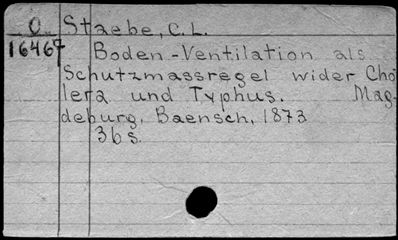 O Staebe, C. L.
16467 Boden-Ventilation als
Schutzmassregel wider Cho-
lera und Typhus. Mag-
deburg, Baensch, 1873
36 s.